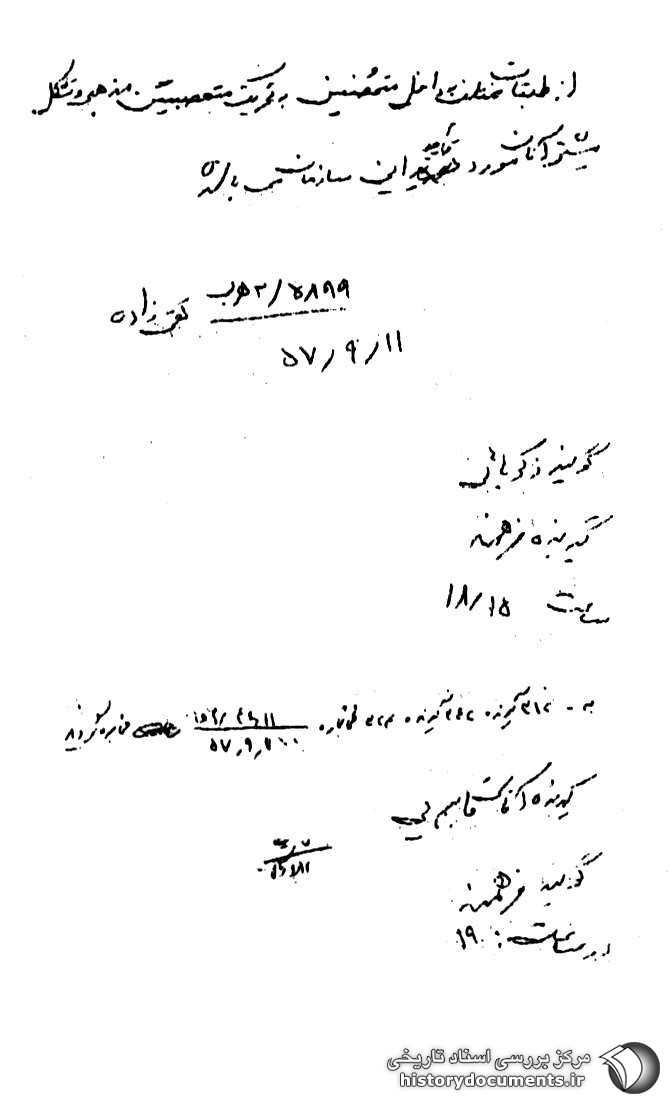 از طبقات مختلف داخلی متحصنین به تحریک متعصبین مذهبی و تشکل
بیشتر آنان مورد تأیید این سازمان می باشد
۲/۵۸۹۹ هـ ب تقی زاده
۵۷/۹/۱۱
گوینده
گیرنده فرهمند
ساعت ۱۸/۱۵
به ۳۱۲ گیرنده ۳۴۲ گیرنده ۳۲۴ مخابره گردید
۵۷/۹
گیرنده قاسمی
گوینده فرهمند
در ساعت: ۱۹
مرکز بررسی اسناد تاریخی
historydocuments.ir